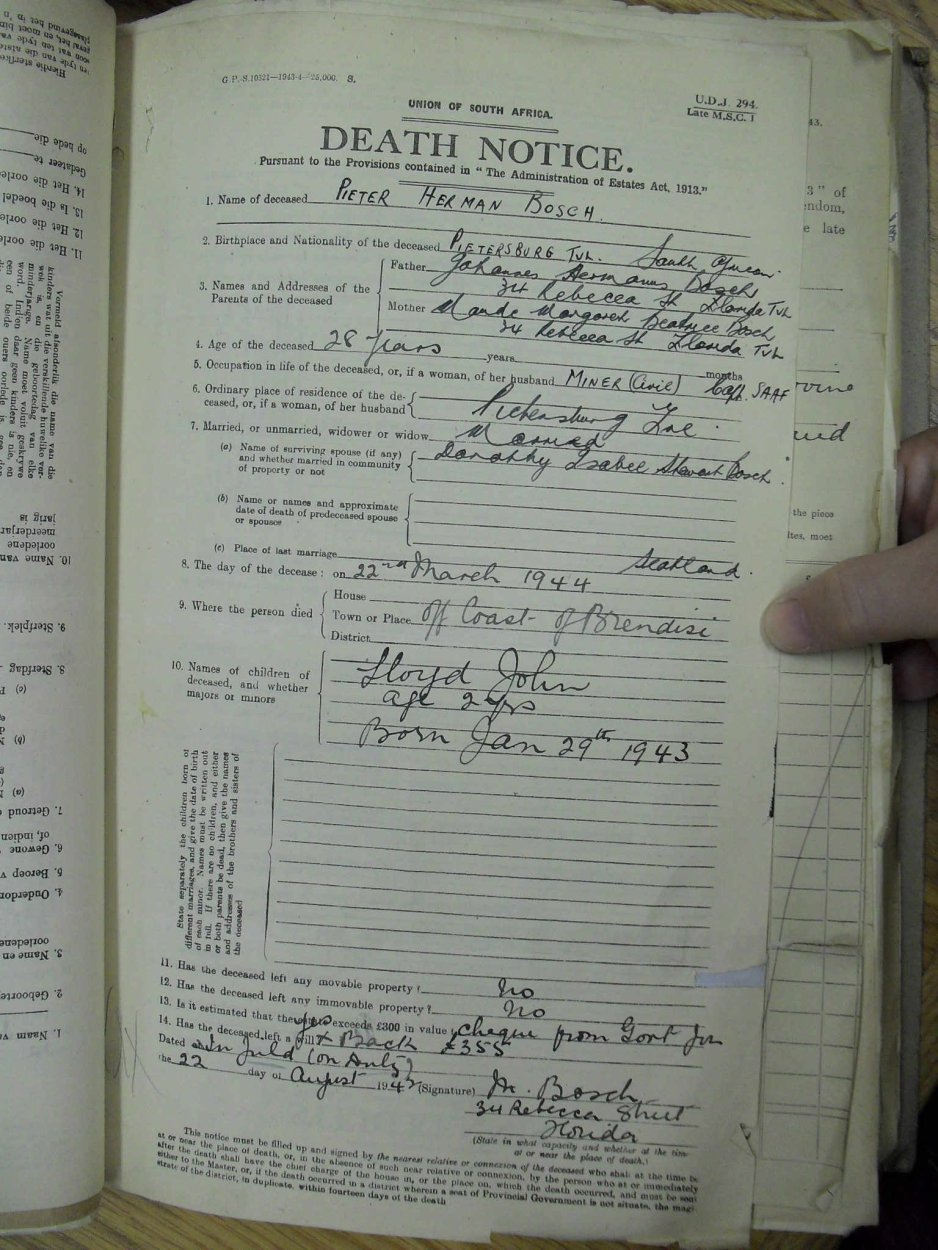 G.P.-S.10321—1943-4—25,000. S.
U.D.J. 294.
Late M.S.C. 1
UNION OF SOUTH AFRICA.
DEATH NOTICE.
Pursuant to the Provisions contained in "The Administration of Estates Act, 1913."
1. Name of deceased PIETER HERMAN BOSCH.
2. Birthplace and Nationality of the deceased PIETERSBURG TVL. South African.
3. Names and Addresses of the Parents of the deceased
Father Johannes Hermanus Bosch
34 Rebecca St Florida Tvl
Mother Maude Margaret Beatrice Bosch
34 Rebecca St Florida Tvl
4. Age of the deceased 28 years years months
5. Occupation in life of the deceased, or, if a woman, of her husband MINER (Civil) Capt. SAAF
6. Ordinary place of residence of the de-
ceased, or, if a woman, of her husband
7. Married, or unmarried, widower or widow Married
(a) Name of surviving spouse (if any)
and whether married in community
of property or not
Dorothy Isabel Stewart Bosch.
(b) Name or names and approximate
date of death of predeceased spouse
or spouses
(c) Place of last marriage Scotland.
8. The day of the decease: on 22nd March 1944
9. Where the person died
House
Town or Place off Coast of Brendisi
District
10. Names of children of
deceased, and whether
majors or minors
Lloyd John
age 2 yrs
Born Jan 29th 1943
State separately the children born of
different marriages, and give the date of birth
of each minor. Names must be written out
in full. If there are no children, and either
or both parents be dead, then give the names
and addresses of the brothers and sisters of
the deceased
11. Has the deceased left any movable property? No
12. Has the deceased left any immovable property? No
13. Is it estimated that the exceeds £300 in value cheque from Govt for
14. Has the deceased left a will? yes £355
Dated
the 22 day of August 194 (Signature) M. Bosch
34 Rebecca Street
Florida
(State in what capacity and whether at the time
at or near the place of death.)
This notice must be filled up and signed by the nearest relative or connexion of the deceased who shall at the time be
at or near the place of death, or, in the absence of such near relative or connexion, by the person who at or immediately
after the death shall have the chief charge of the house in, or the place on, which the death occurred, and must be sent
either to the Master, or, if the death occurred in a district wherein a seat of Provincial Government is not situate, the magi-
strate of the district, in duplicate, within fourteen days of the death